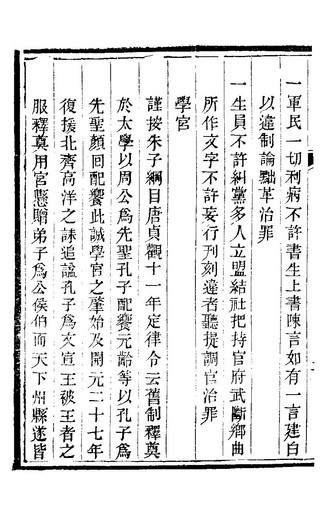 一軍民一切利病不許書生上書陳言如有一言建白
以違制論黜革治罪
一生員不許糾黨多人立盟結社把持官府武斷鄉曲
所作文字不許妄行刊刻違者聽提調官治罪
學宮
謹按朱子綱目唐貞觀十一年定律令云舊制釋奠
於太學以周公為先聖孔子配饗元齡等以孔子為
先聖顏回配饗此誠學宮之肇始及開元二十七年
復援北齊高洋之誄追諡孔子為文宣王被王者之
服釋奠用宮懸贈弟子為公侯伯而天下州縣遂皆